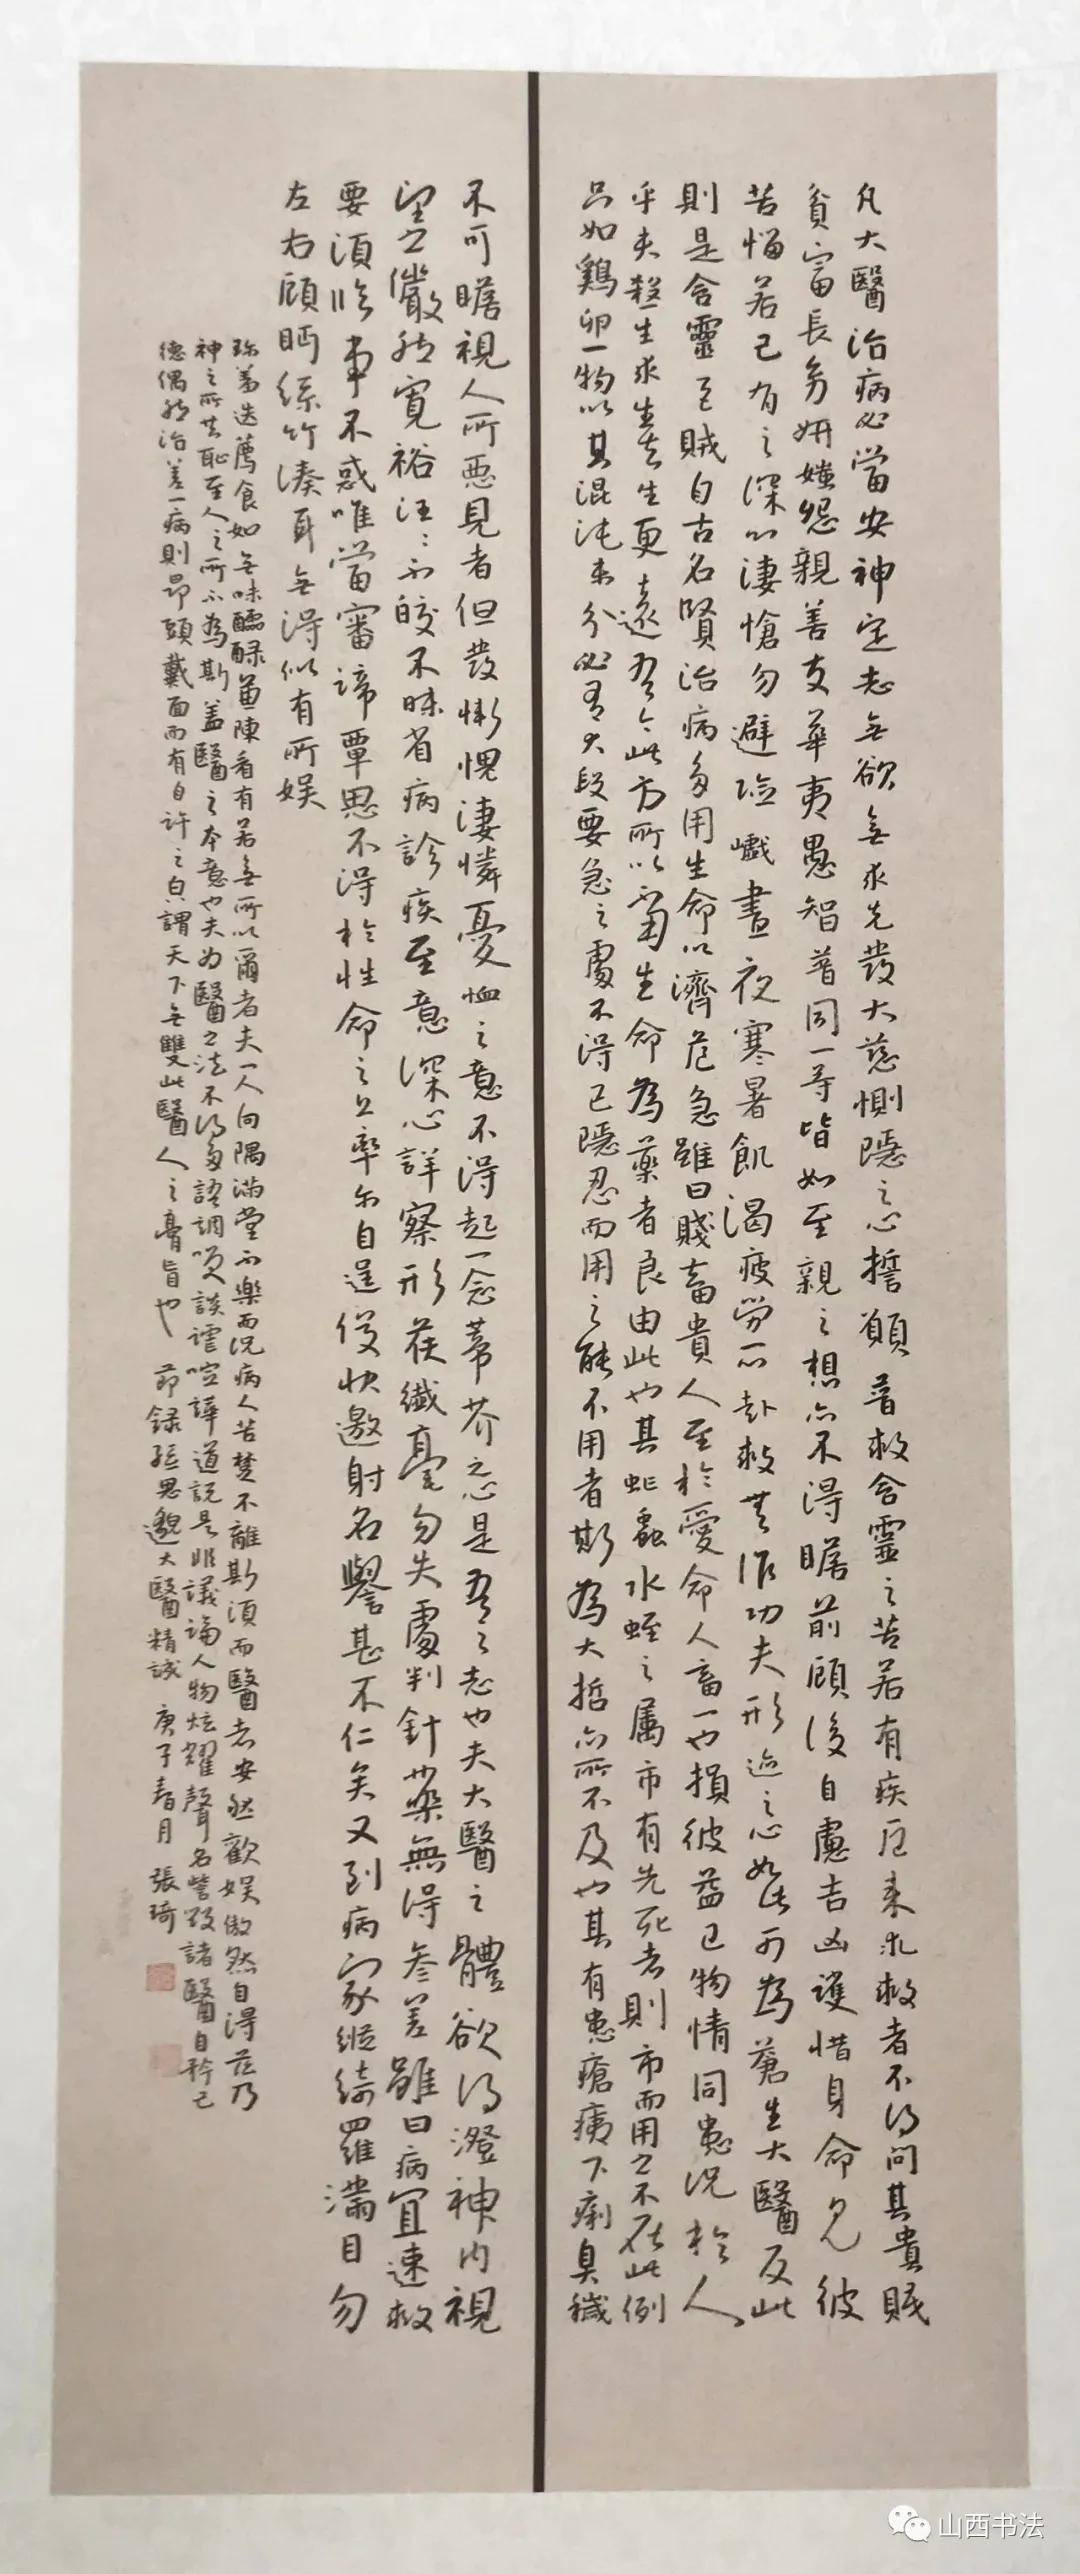 凡大醫治病必當安神定志無欲無求先發大慈惻隱之心誓願普救含靈之苦若有疾厄來求救者不得問其貴賤
貧富長幼妍媸怨親善友華夷愚智普同一等皆如至親之想亦不得瞻前顧後自慮吉凶護惜身命見彼
苦惱若己有之深心淒愴勿避險巇晝夜寒暑飢渴疲勞一心赴救無作功夫形迹之心如此可為蒼生大醫反此
則是含靈巨賊自古名賢治病多用生命以濟危急雖曰賤畜貴人至於愛命人畜一也損彼益己物情同患況於人
乎夫殺生求生去生更遠吾今此方所以不用生命為藥者良由此也其虻蟲水蛭之屬市有先死者則市而用之不在此例
只如鷄卵一物以其混沌未分必有大段要急之處不得已隱忍而用之能不用者斯為大哲亦所不及也其有患瘡痍下痢臭穢
不可瞻視人所惡見者但發慚愧淒憐憂恤之意不得起一念蒂芥之心是吾之志也夫大醫之體欲得澄神內視
望之儼然寬裕汪汪不皎不昧省病診疾至意深心詳察形候纖毫勿失處判針藥無得參差雖曰病宜速救
要須臨事不惑唯當審諦覃思不得於性命之上率爾自逞俊快邀射名譽甚不仁矣又到病家縱綺羅滿目勿
左右顧眄絲竹湊耳無得似有所娛
珍羞迭薦食如無味醽醁兼陳看有若無所以爾者夫一人向隅滿堂不樂而況病人苦楚不離斯須而醫者安然歡娛傲然自得茲乃
神之所共恥至人之所不為斯盖醫之本意也夫為醫之法不得多語調笑談謔喧譁道說是非議論人物炫耀聲名訾毀諸醫自矜己
德偶然治差一病則昂頭戴面而有自許之皃謂天下無雙此醫人之膏肓也 節録孫思邈大醫精誠 庚子春月 張琦
山西书法